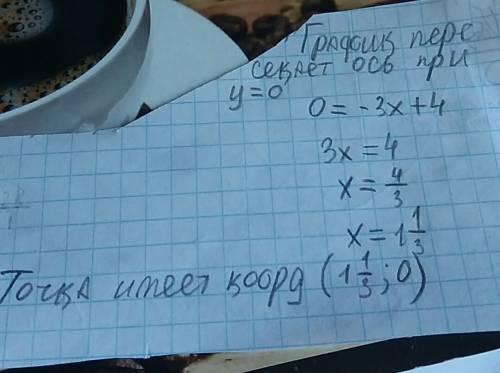 График пере
секает ось при
y=0
0=-3x+4
3x=4
x=4/3
x=1 1/3
Точка имеет коорд (1 1/3; 0)